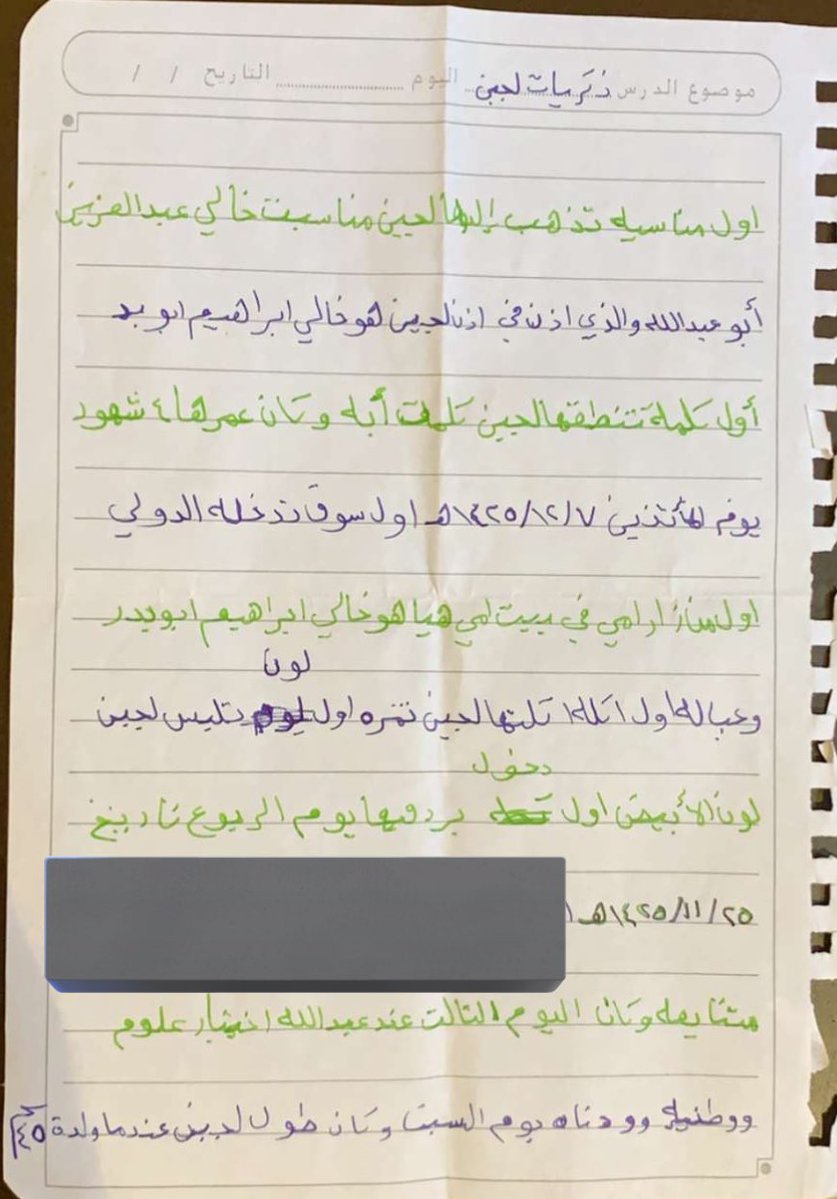 موضوع الدرس ذكريات لجين اليوم التاريخ / /
اول مناسبه تذهب إليها لجين مناسبت خالي عبدالعزيز
أبو عبدالله والذي اذن في اذن لجين هو خالي ابراهيم ابو بد
أول كلمة تنطقها لجين كلمت أبله وكان عمرها ٤ شهود
يوم الأثنين ١٤٢٥/١٢/٧هـ اول سوق تدخله الدولي
اول من زار امي في بيت امي هيا هو خالي ابراهيم ابو بدر
لون
وعياله اول اكله اكلتها لجين تمره اول تلبس لجين
دخول
لون الأبيض اول بردفيها يوم الربوع تاريخ
١٤٢٥/١١/٢٥هـ
متتابعه وكان اليوم الثالث عند عبدالله اختبار علوم
ووطنيه وودناه يوم السبت وكان طول لجين عندما ولدة ٤٥